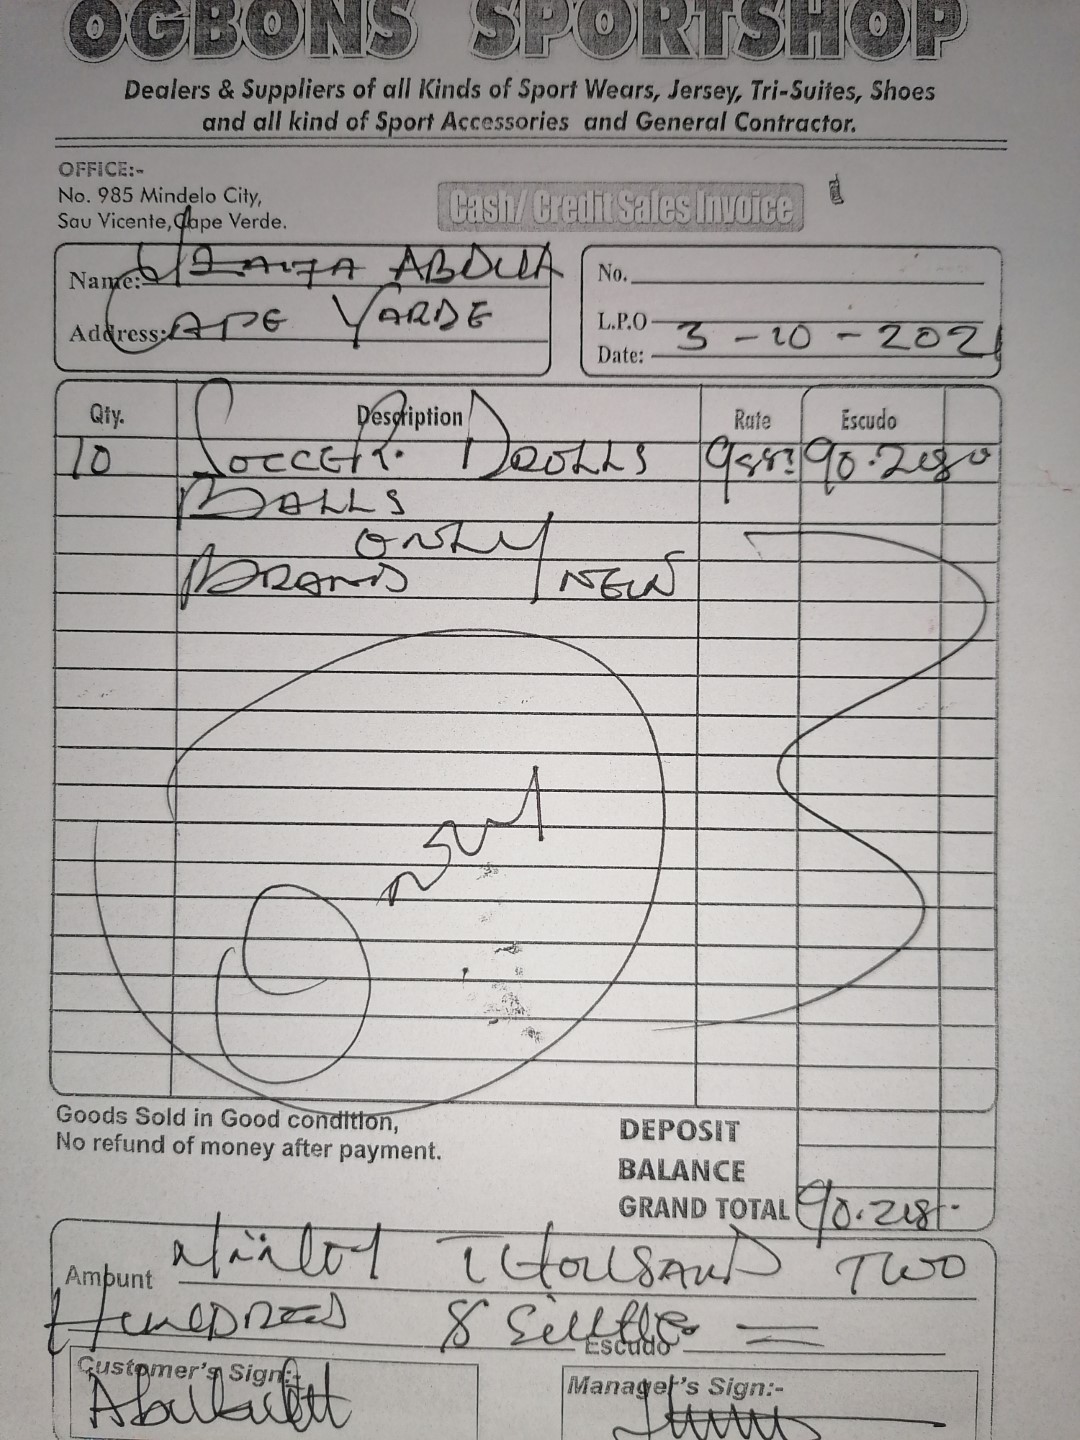 OGBONS SPORTSHOP
Dealers & Suppliers of all Kinds of Sport Wears, Jersey, Tri-Suites, Shoes
and all kind of Sport Accessories and General Contractor.
OFFICE:-
No. 985 Mindelo City,
Sau Vicente, Cape Verde.
Cash/ Credit Sales Invoice
Name:
Address: CAPE VARDE
No.
L.P.O
Date: 3-10-2021
Qty. Description Rate Escudo
10 SOCCER.
BALLS
ONLY
BRAND NEW
Goods Sold in Good condition,
No refund of money after payment.
DEPOSIT
BALANCE
GRAND TOTAL
Amount THOUSAND TWO
HUNDRED &
Escudo
Customer's Sign:-
Manager's Sign:-